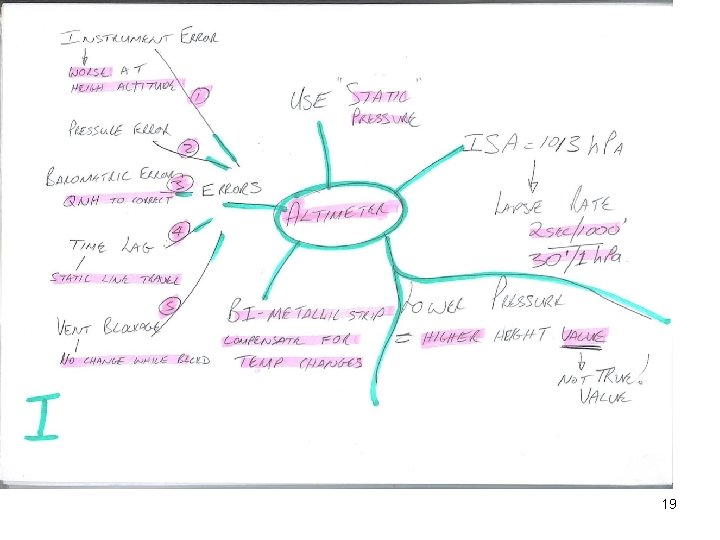 INSTRUMENT ERROR
WORSE AT
HEIGH ALTITUDE
①
PRESSURE ERROR
②
BAROMATRIC ERROR
③
QNH TO CORRECT
ERRORS
④
TIME LAG
STATIC LINE TRAVEL
⑤
VENT BLOCKAGE
NO CHANGE WHILE
USE "STATIC"
PRESSURE
ALTIMETER
BI-METALLIC STRIP
COMPENSATE FOR
TEMP CHANGES
ISA = 1013 hPA
LAPSE RATE
30'/1 hPa
LOWER PRESSURE
= HIGHER HEIGHT VALUE
NOT TRUE!
VALUE
I
19